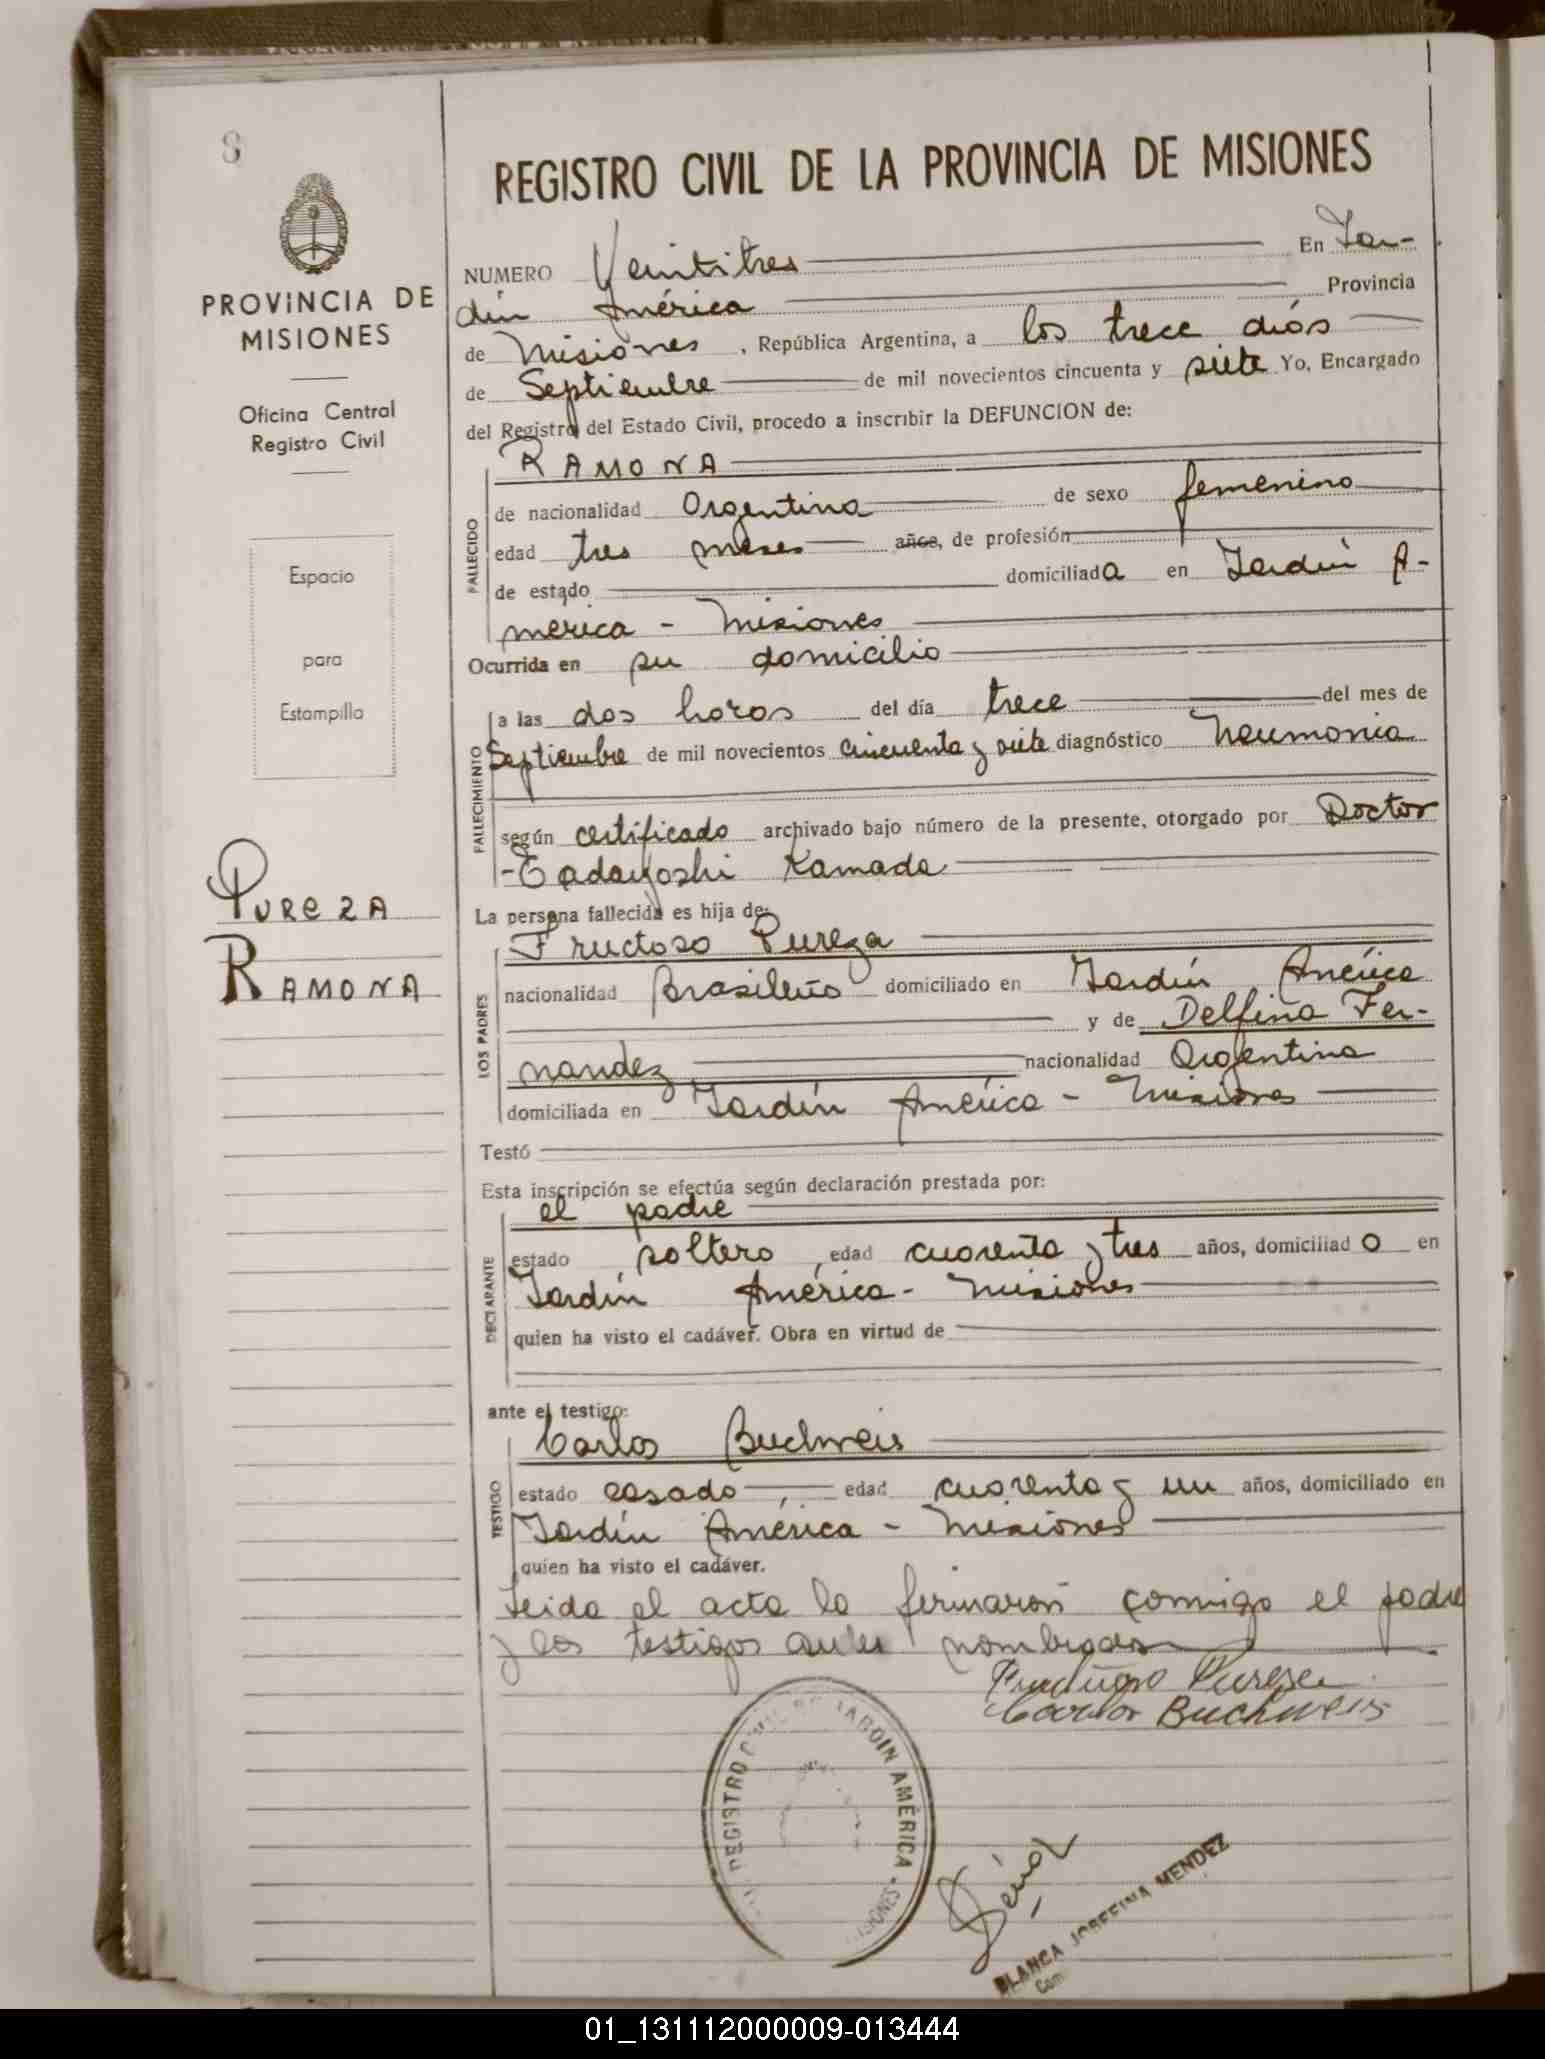 8
PROVINCIA DE
MISIONES
Oficina Central
Registro Civil
Espacio
para
Estampilla
PUREZA
RAMONA
REGISTRO CIVIL DE LA PROVINCIA DE MISIONES
NUMERO Veintitres En Jar-
dín América Provincia
de Misiones, República Argentina, a los trece días
de Septiembre de mil novecientos cincuenta y siete Yo, Encargado
del Registro del Estado Civil, procedo a inscribir la DEFUNCION de:
RAMONA
FALLECIDO
de nacionalidad Argentina de sexo femenino
edad tres meses años, de profesión
de estado domiciliada en Jardín A-
merica - Misiones
Ocurrida en su domicilio
FALLECIMIENTO
a las dos horas del día trece del mes de
Septiembre de mil novecientos cincuenta y siete diagnóstico Neumonia
según certificado archivado bajo número de la presente, otorgado por Doctor
- Tadayoshi Kamada
La persona fallecida es hija de:
LOS PADRES
Fructoso Pureza
nacionalidad Brasileño domiciliado en Jardín América
y de Delfina Fer-
nandez nacionalidad Argentina
domiciliada en Jardín América - Misiones
Testó
Esta inscripción se efectúa según declaración prestada por:
DECLARANTE
el padre
estado soltero, edad cuarenta y tres años, domiciliado en
Jardín América - Misiones
quien ha visto el cadáver. Obra en virtud de
ante el testigo:
TESTIGO
Carlos Buchweis
estado casado, edad cuarenta y un años, domiciliado en
Jardín América - Misiones
quien ha visto el cadáver.
Leida el acta la firmaron conmigo el padre
y los testigos antes nombrados
Pureza
Carlos Buchweis
REGISTRO CIVIL DE JARDIN AMÉRICA - MISIONES
BLANCA JOSEFINA MENDEZ
01_131112000009-013444